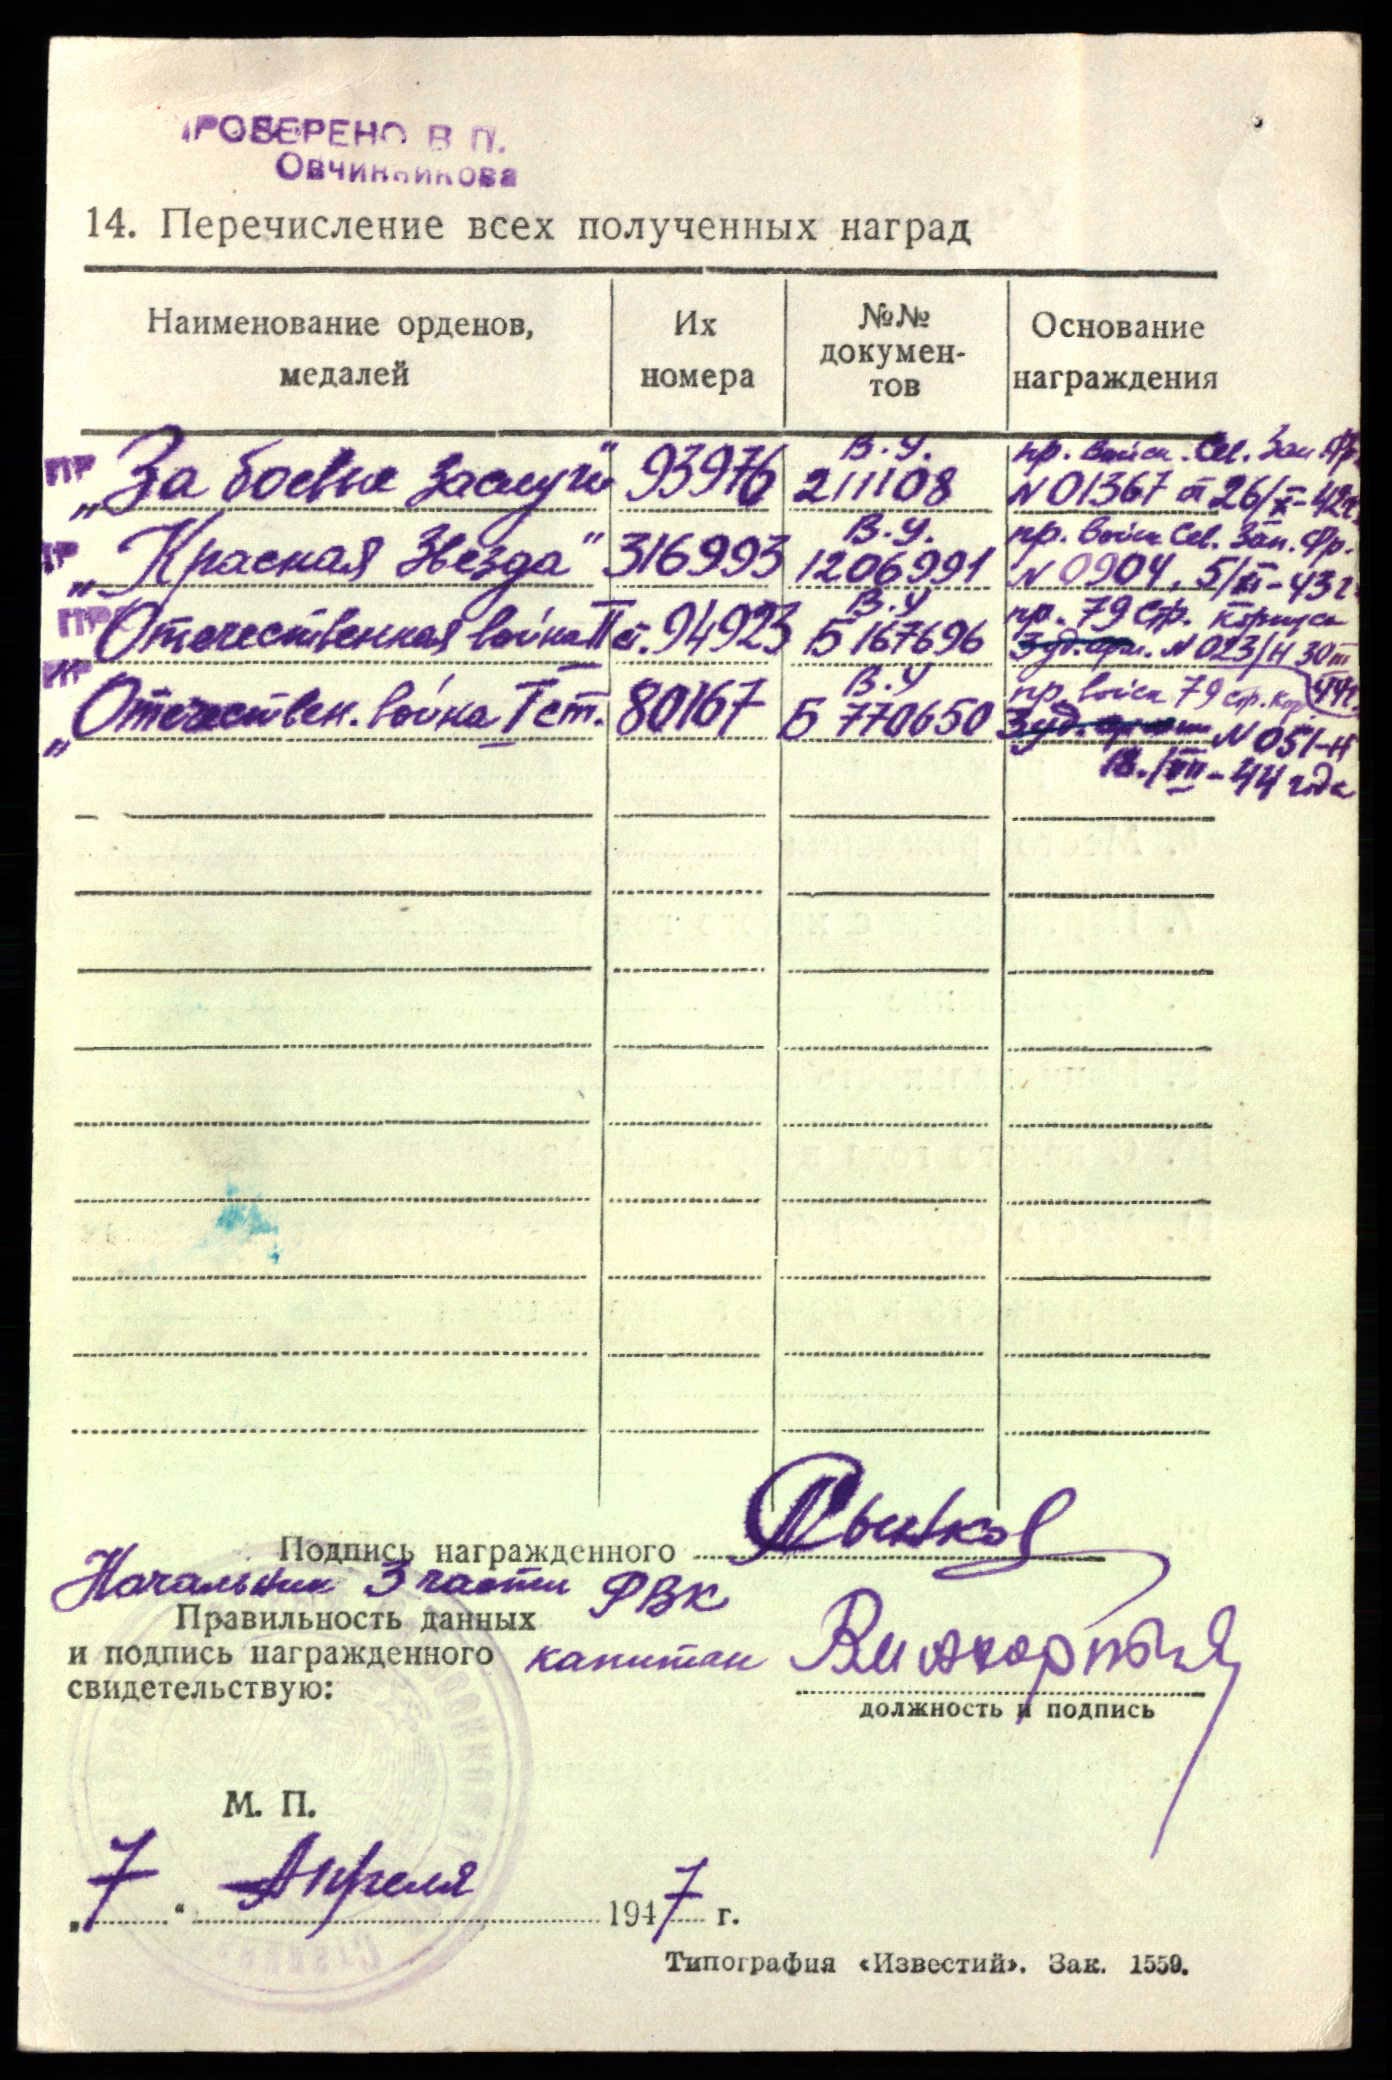 ПРОВЕРЕНО В П.
Овчинникова
14. Перечисление всех полученных наград
Наименование орденов, медалей
Их номера
№№ докумен-тов
Основание награждения
ПР „За боевые заслуги" 93976 В.У. 211108 пр. войск. Сев. Зап. Фр. N 01367 от 26/X-42г.
ПР „Красная Звезда" 316993 В.У. 1206991 пр. войск Сев. Зап. Фр. N 0904, 5/-43г
ПР Отечественная война II ст. 94923 В.У Б 167696 пр. 79 стр. корпуса N 023/н 30 44г.
ПР „Отечествен. война I ст. 80167 В.У Б 770650 пр. войск 79 стр. кор. N 051-н
-44 года
Подпись награжденного
Начальник 3 части РВК
Правильность данных
и подпись награжденного капитан
свидетельствую:
должность и подпись
М. П.
„7" Апреля 1947 г.
Типография «Известий». Зак. 1559.